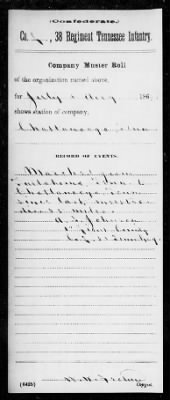 (Confederate.)
Co. L, 38 Regiment Tennessee Infantry.
Company Muster Roll
of the organization named above,
for July & Aug, 186
shows station of company,
Chattanooga, Tenn
RECORD OF EVENTS.
Marched from
Tullahoma, Tenn. to
Chattanooga, Tenn
since last muster
miles
1st Lieut Comdg
(642b)
Copyist.